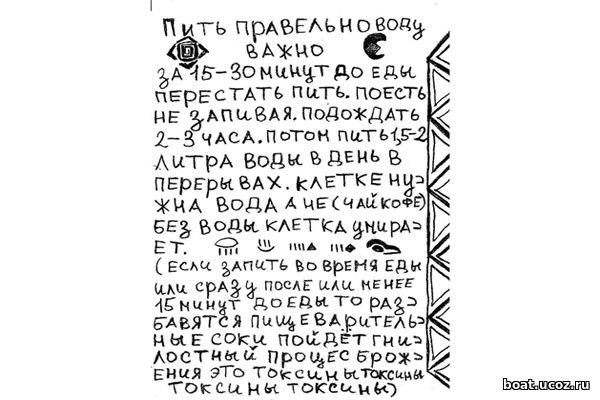 Пить правельно воду
важно
за 15-30 минут до еды
перестать пить. поесть
не запивая. подождать
2-3 часа. потом пить 1,5-2
литра воды в день в
перерывах. клетке ну-
жна вода а не (чай кофе)
без воды клетка умира-
ет.
(если запить во время еды
или сразу после или менее
15 минут до еды то раз-
бавятся пищеваритель-
ные соки пойдёт гни-
лостный процес брож-
ения это токсины токсины
токсины токсины)
boat.ucoz.ru